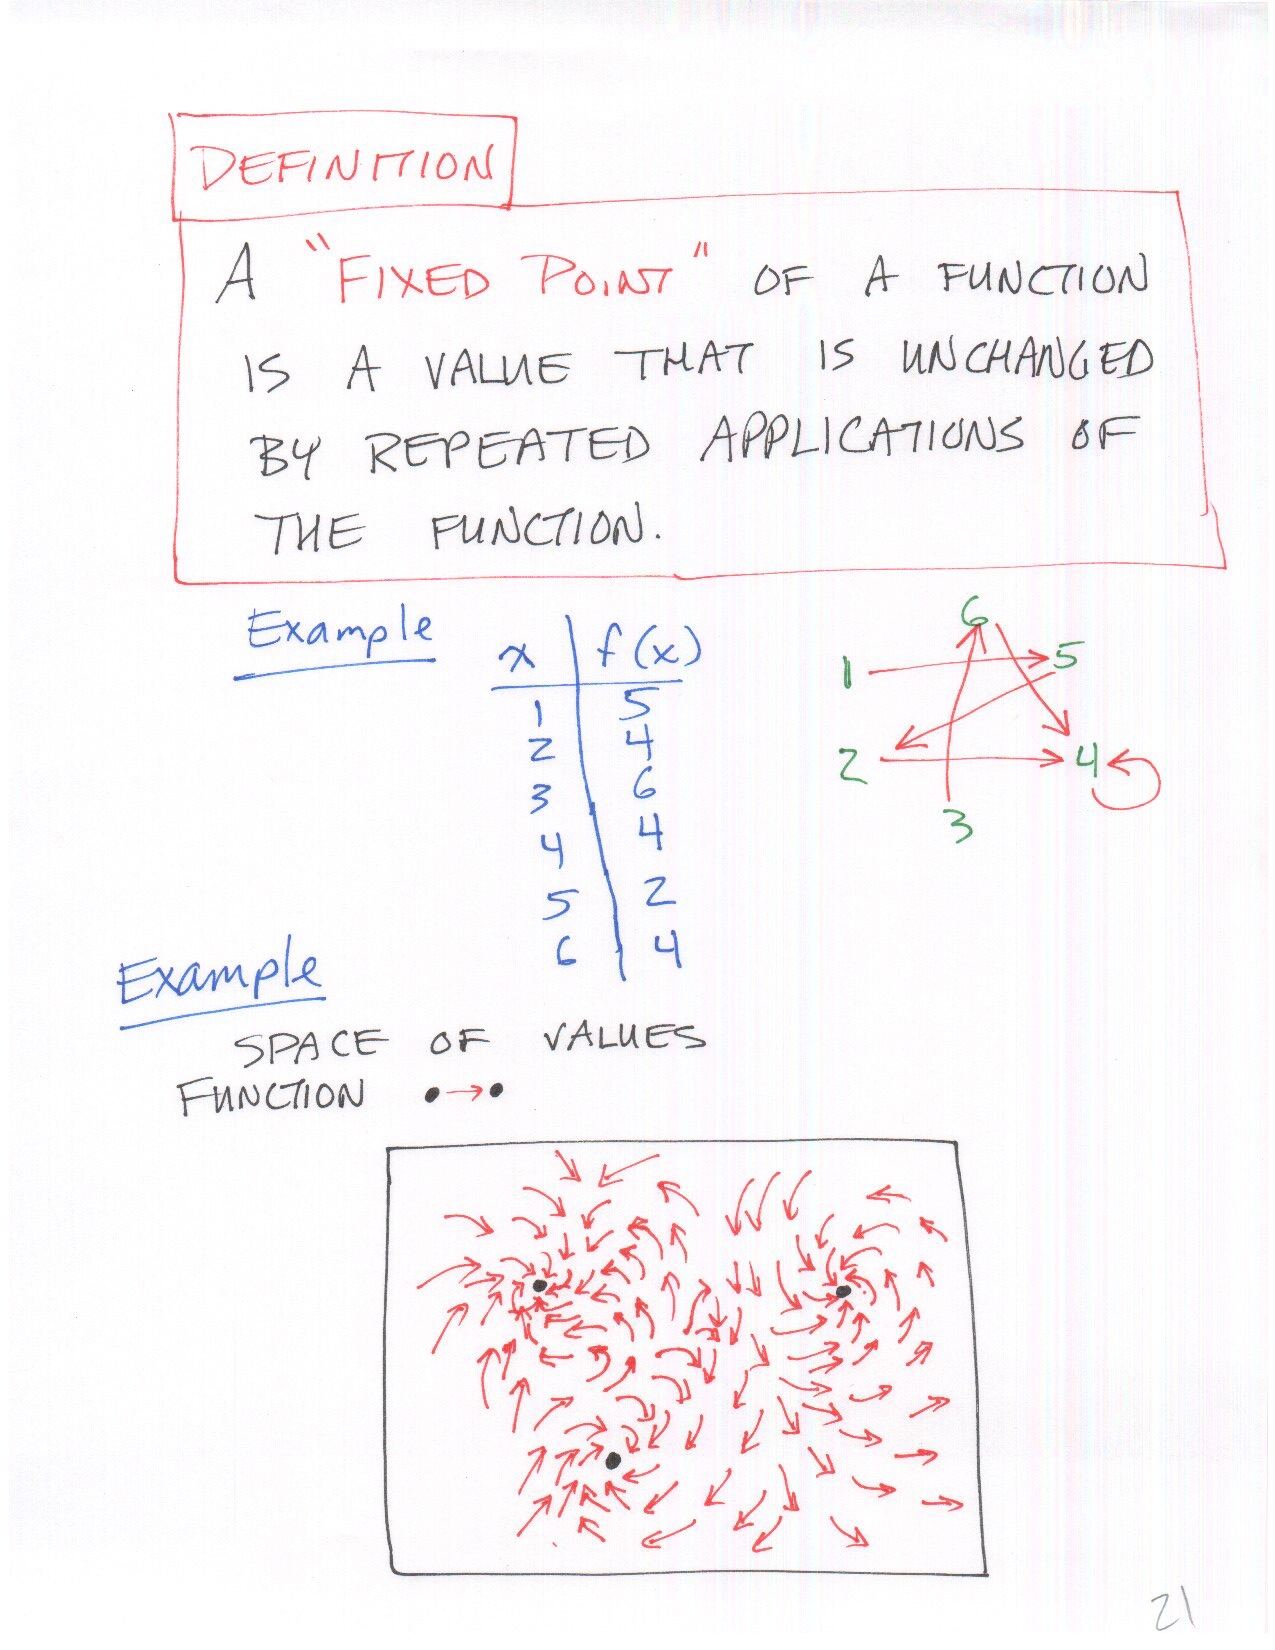 DEFINITION
A "FIXED POINT" OF A FUNCTION
IS A VALUE THAT IS UNCHANGED
BY REPEATED APPLICATIONS OF
THE FUNCTION.
Example
x f(x)
1 5
2 4
3 6
4 4
5 2
6 4
6
1 5
2 4
3
Example
SPACE OF VALUES
FUNCTION
21